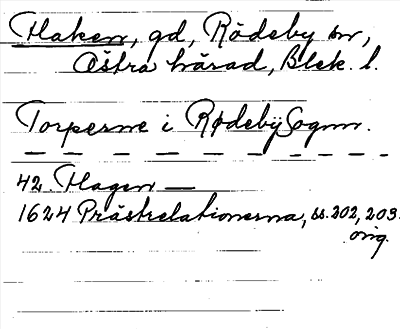 Haken, gd, Rödeby sn,
Östra härad, Blek. l.
Torperne i Rødeby Sognn.
— — — — — — — — — —
42. Hagen —
1624 Prästrelationerna, ss. 202, 203.
orig.